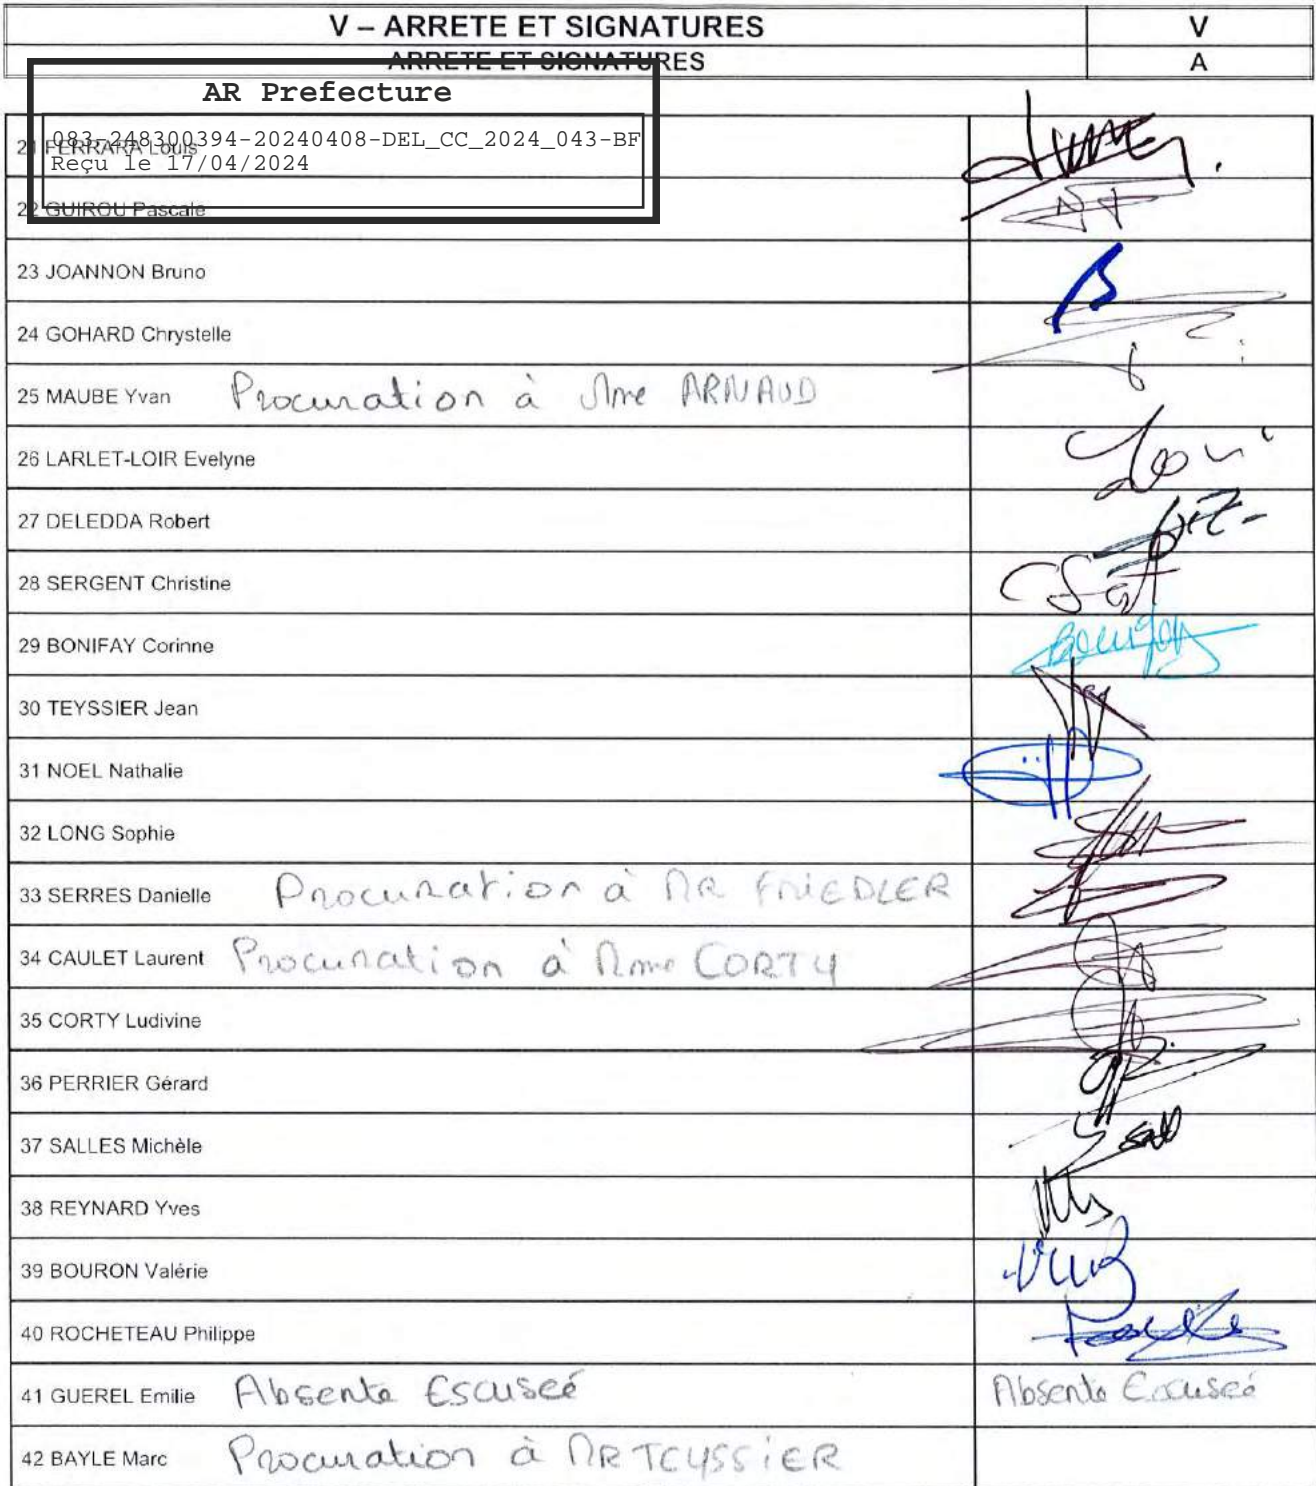 V – ARRETE ET SIGNATURES V
ARRETE ET SIGNATURES A
AR Prefecture
083-248300394-20240408-DEL_CC_2024_043-BF
Reçu le 17/04/2024
21 FERRARA Louis
22 GUIROU Pascale
23 JOANNON Bruno
24 GOHARD Chrystelle
25 MAUBE Yvan Procuration à Mme ARNAUD
26 LARLET-LOIR Evelyne
27 DELEDDA Robert
28 SERGENT Christine
29 BONIFAY Corinne
30 TEYSSIER Jean
31 NOEL Nathalie
32 LONG Sophie
33 SERRES Danielle Procuration à MR FRIEDLER
34 CAULET Laurent Procuration à Mme CORTY
35 CORTY Ludivine
36 PERRIER Gérard
37 SALLES Michèle
38 REYNARD Yves
39 BOURON Valérie
40 ROCHETEAU Philippe
41 GUEREL Emilie Absente Escuseé Absente Excuseé
42 BAYLE Marc Procuration à MR TEYSSIER